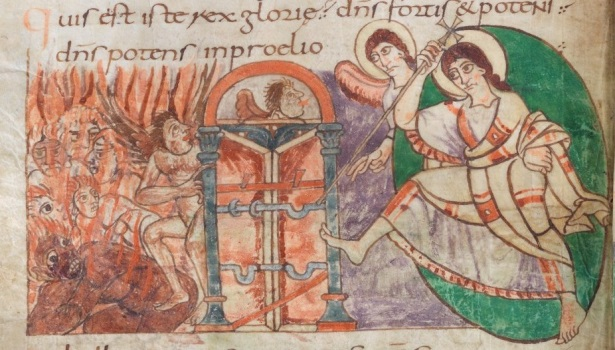 Quis est iste rex glorie? dns fortis & potens
dns potens in proelio